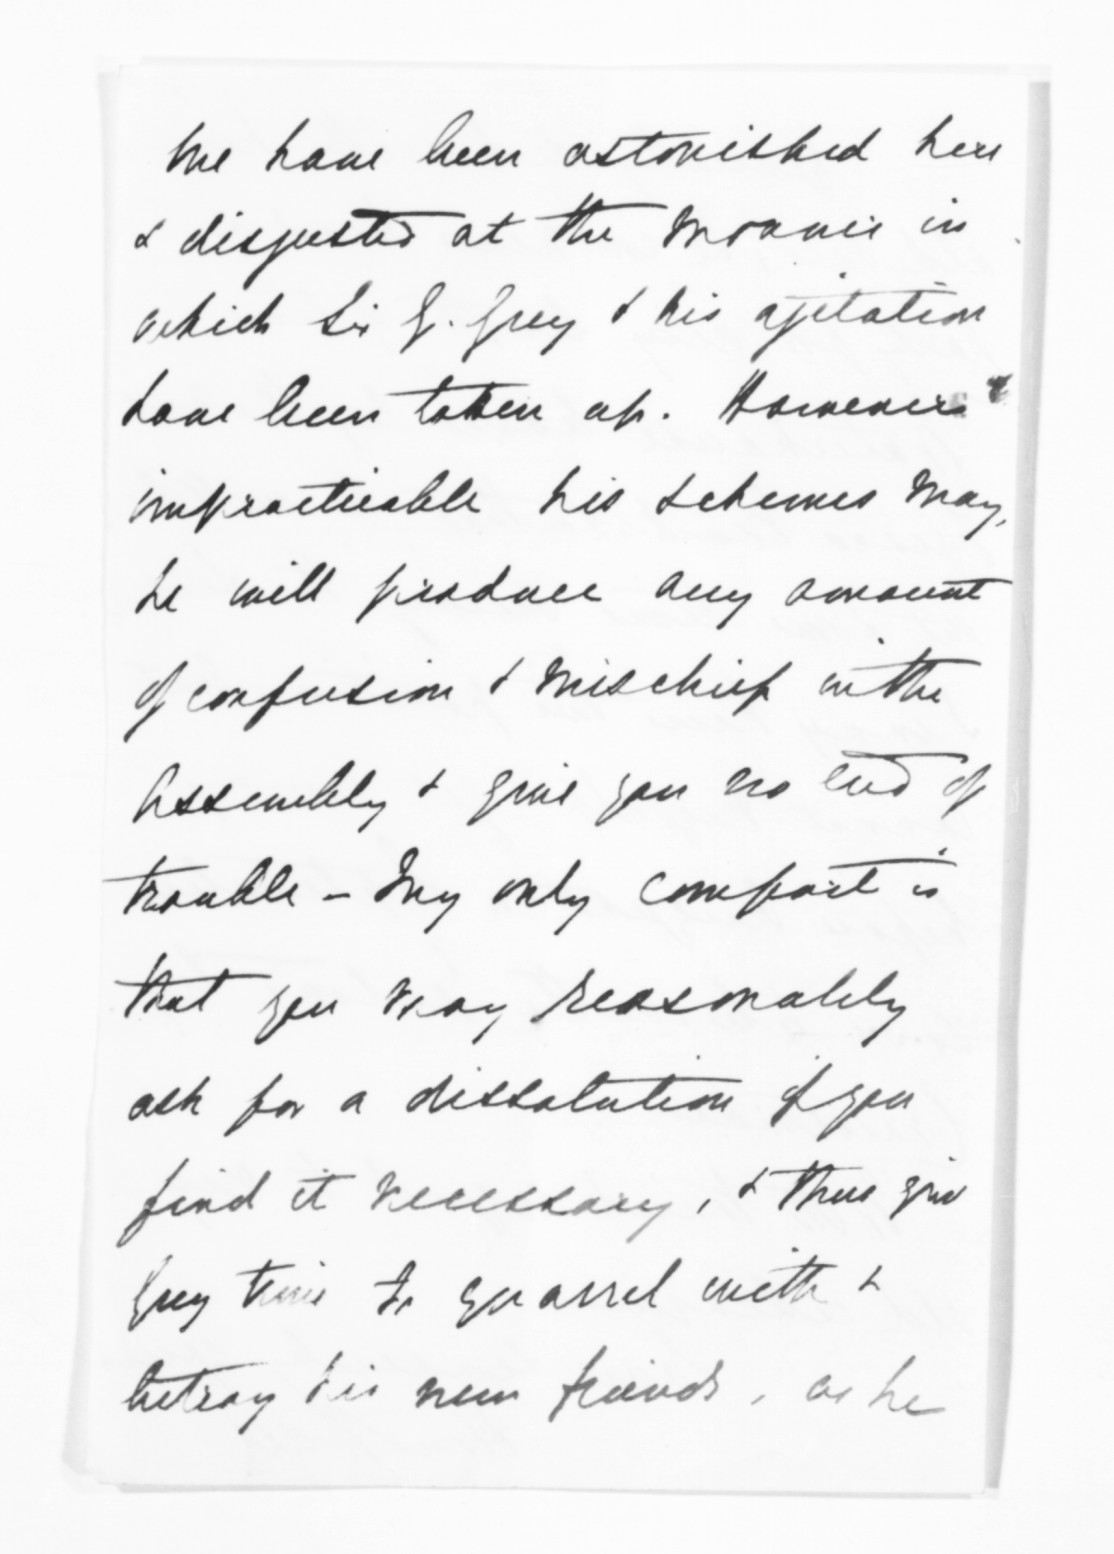 We have been astonished here
& disgusted at the manner in
which Sir G. Grey & his agitation
have been taken up. However
impracticable his schemes may,
he will produce any amount
of confusion & mischief in the
Assembly & give you no end of
trouble - My only comfort is
that you may reasonably
ask for a dissolution if you
find it necessary, & thus give
Grey time to quarrel with &
betray his new friends, as he